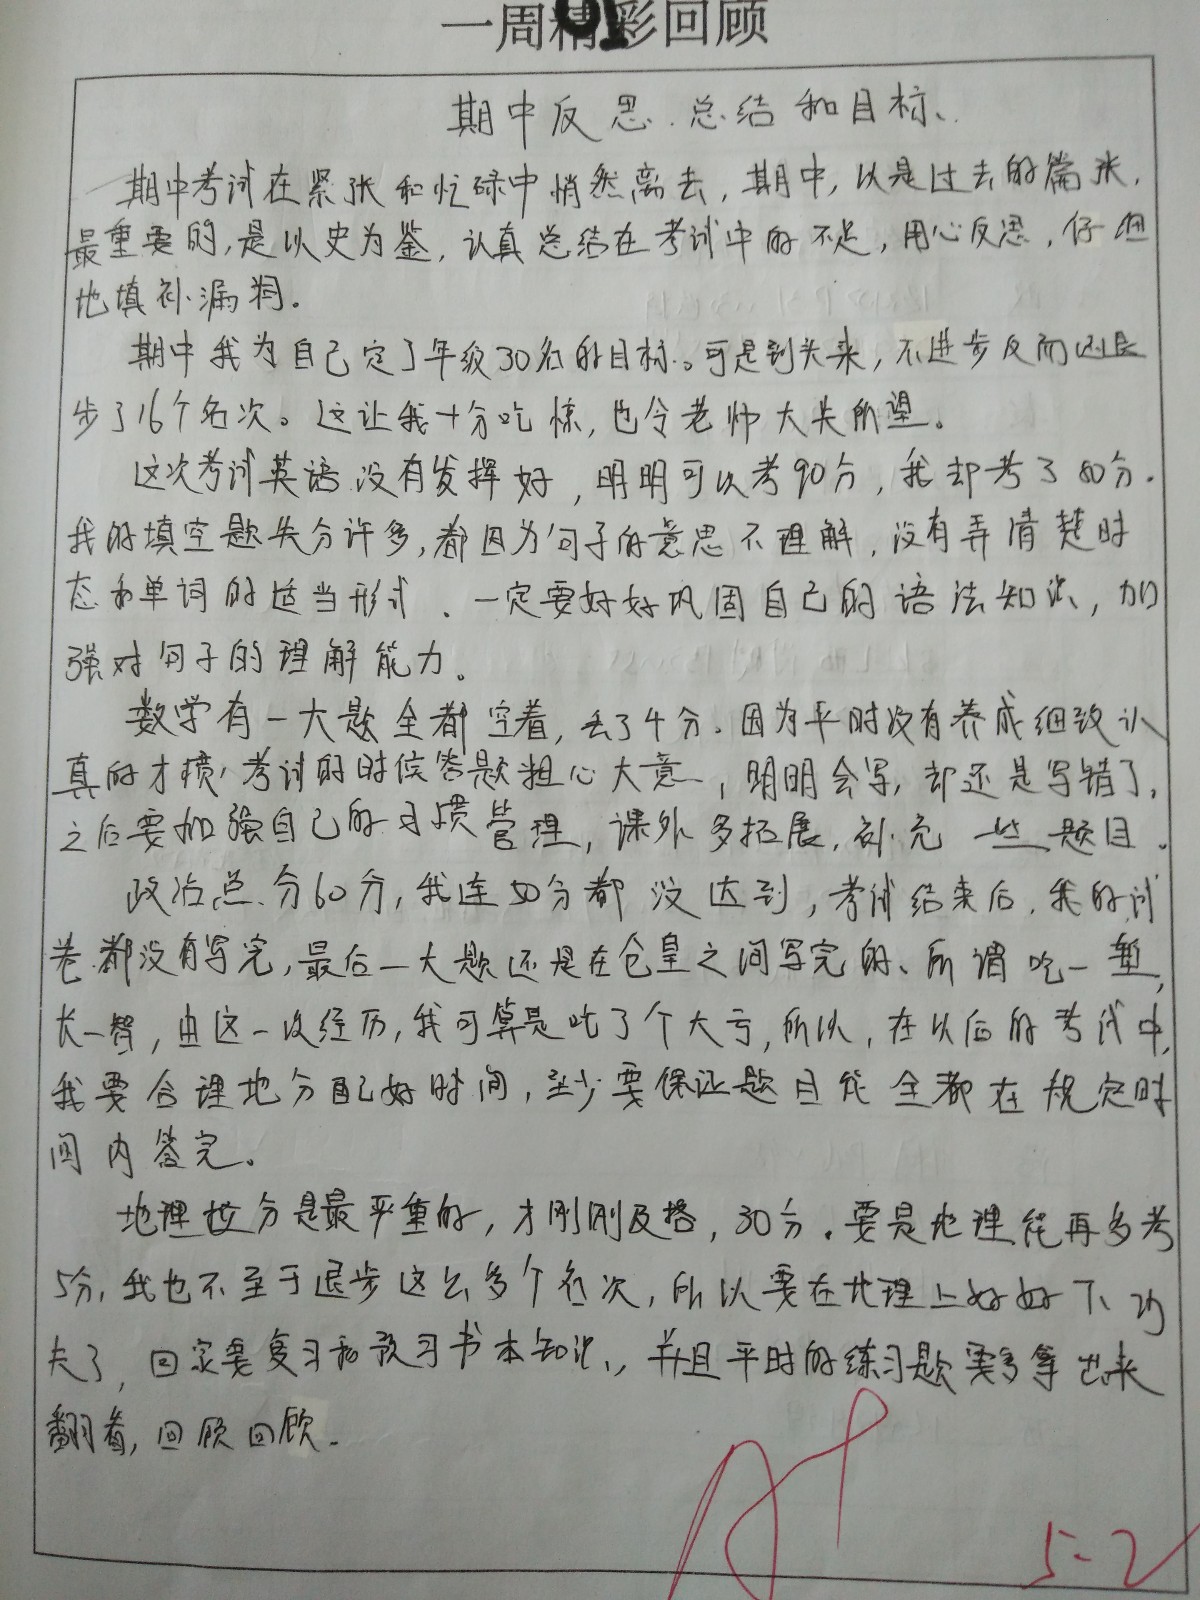 一周精彩回顾
期中反思.总结和目标、
期中考试在紧张和忙碌中悄然离去，期中，以是过去的篇张，
最重要的，是以史为鉴，认真总结在考试中的不足，用心反思，仔细
地填补漏洞。
期中我为自己定了年级30名的目标。可是到头来，不进步反而退
步了16个名次。这让我十分吃惊，也令老师大失所望。
这次考试英语没有发挥好，明明可以考90分，我却考了80分.
我的填空题失分许多，都因为句子的意思不理解，没有弄清楚时
态和单词的适当形式、一定要好好巩固自己的语法知识，加
强对句子的理解能力。
数学有一大题全都空着，丢了4分.因为平时没有养成细致认
真的才惯，考试的时候答题粗心大意，明明会写，却还是写错了，
之后要加强自己的习惯管理，课外多拓展，补充一些题目。
政治总分60分，我连50分都没达到，考试结束后，我的试
卷都没有写完，最后一大题还是在仓皇之间写完的、所谓吃一堑，
长一智，由这一次经历，我可算是吃了个大亏，所以，在以后的考试中，
我要合理地分配好时间，至少要保证题目能全都在规定时
间内答完。
地理拉分是最严重的，才刚刚及格，30分.要是地理能再多考
5分，我也不至于退步这么多个名次，所以要在地理上好好下功
夫了，回家要复习和预习书本知识、，并且平时的练习题要多拿出来
翻看，回顾回顾.
A+
5-2